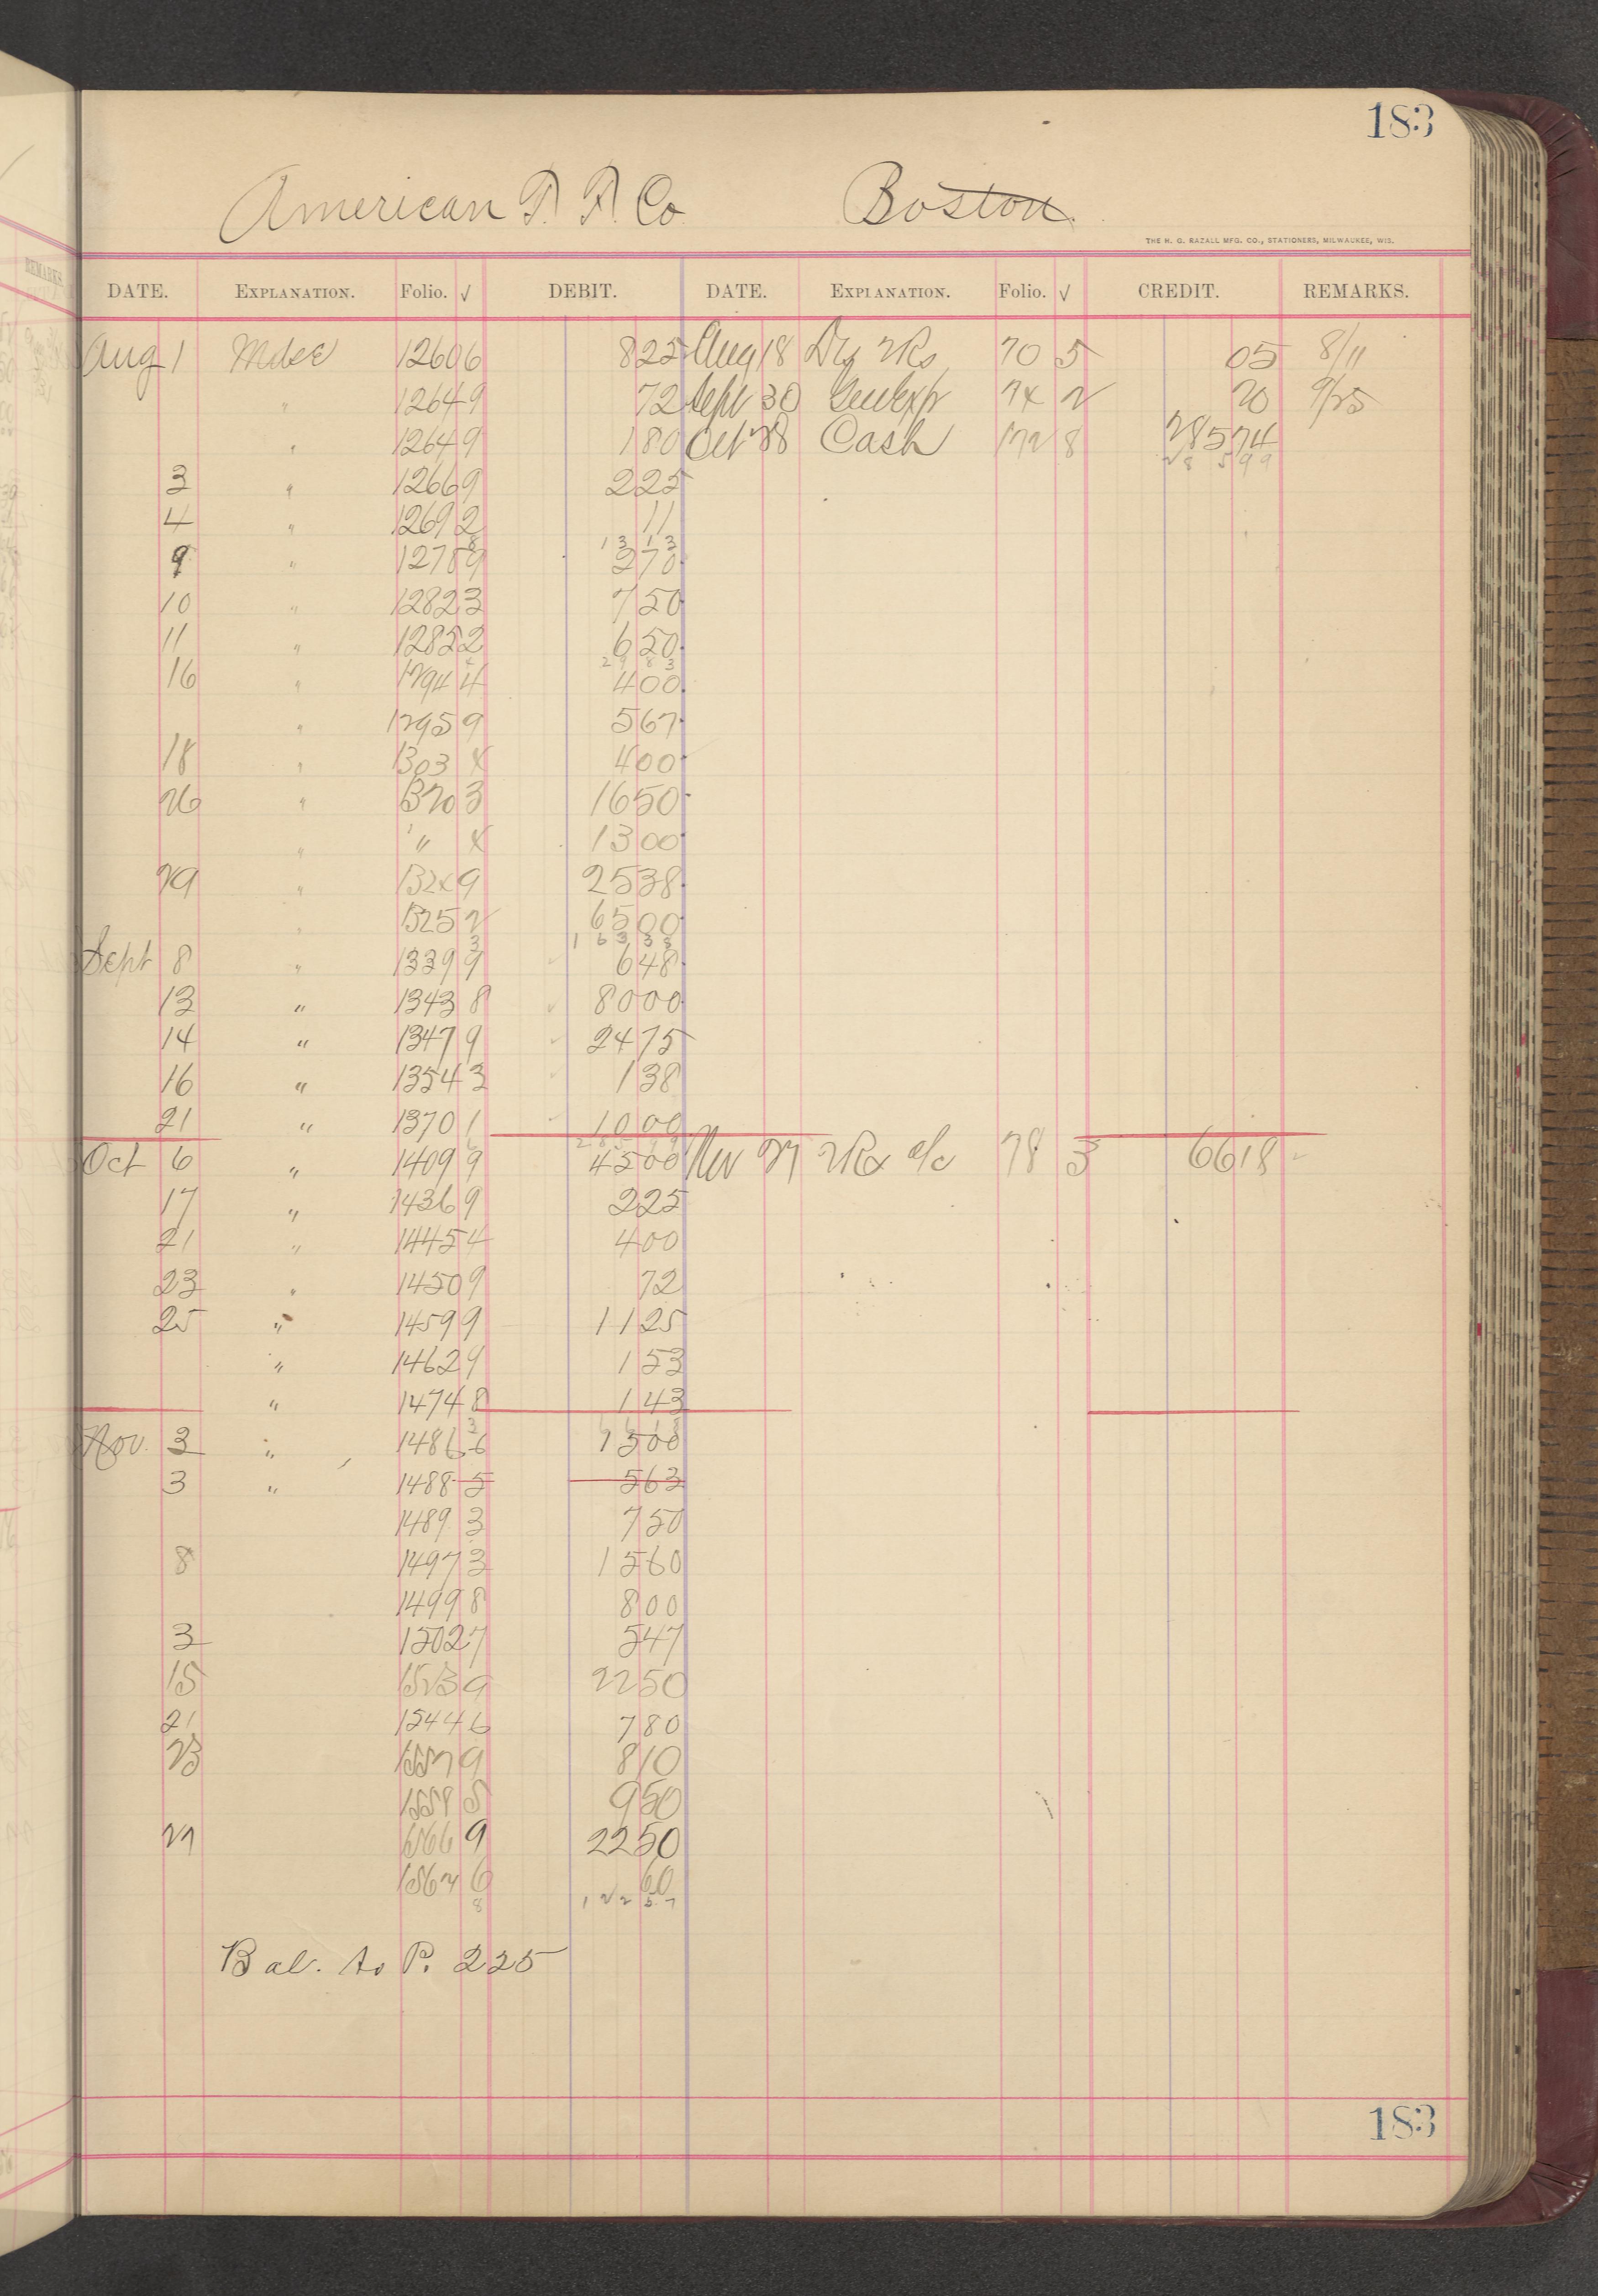 183
American F. F. Co. Boston
THE H. G. RAZALL MFG. CO., STATIONERS, MILWAUKEE, WIS.
DATE. EXPLANATION. Folio. √ DEBIT. DATE. EXPLANATION. Folio. √ CREDIT. REMARKS.
Aug 1 Mdse 1260 6 8 25 Aug 18 70 5 05 8/11
" 1264 9 72 Sept 30 Gen Exp 74 2 20 9/25
" 1264 9 1 80 Oct 28 Cash 172 8 285 74
28 5 99
3 " 1266 9 2 25
4 " 1269 2 11
13 13
9 " 1278 9 2 70
10 " 1282 3 7 50
11 " 1285 2 6 50
29 83
16 " 1294 4 4 00
" 1295 9 5 67
18 " 1303 4 4 00
26 " 1320 3 16 50
" " 4 13 00
29 " 1324 9 25 38
" 1325 2 65 00
1 63 33
Sept 8 " 1339 9 6 48
13 " 1343 8 80 00
14 " 1347 9 24 75
16 " 1354 3 1 38
21 " 1370 1 10 00
2 85 99
Oct 6 " 1409 9 45 00 Nov 27 78 3 66 18
17 " 1436 9 2 25
21 " 1445 4 4 00
23 " 1450 9 72
25 " 1459 9 11 25
" 1462 9 1 53
" 1474 8 1 43
Nov. 3 " 1486 6 15 00
3 " 1488 5 5 63
1489 3 7 50
8 1497 3 15 60
1499 8 8 00
3 1502 7 5 47
15 1523 9 22 50
21 1544 6 7 80
23 1557 9 8 10
1559 5 9 50
27 1566 9 22 50
1567 6 60
1 22 57
Bal. to P. 225
183